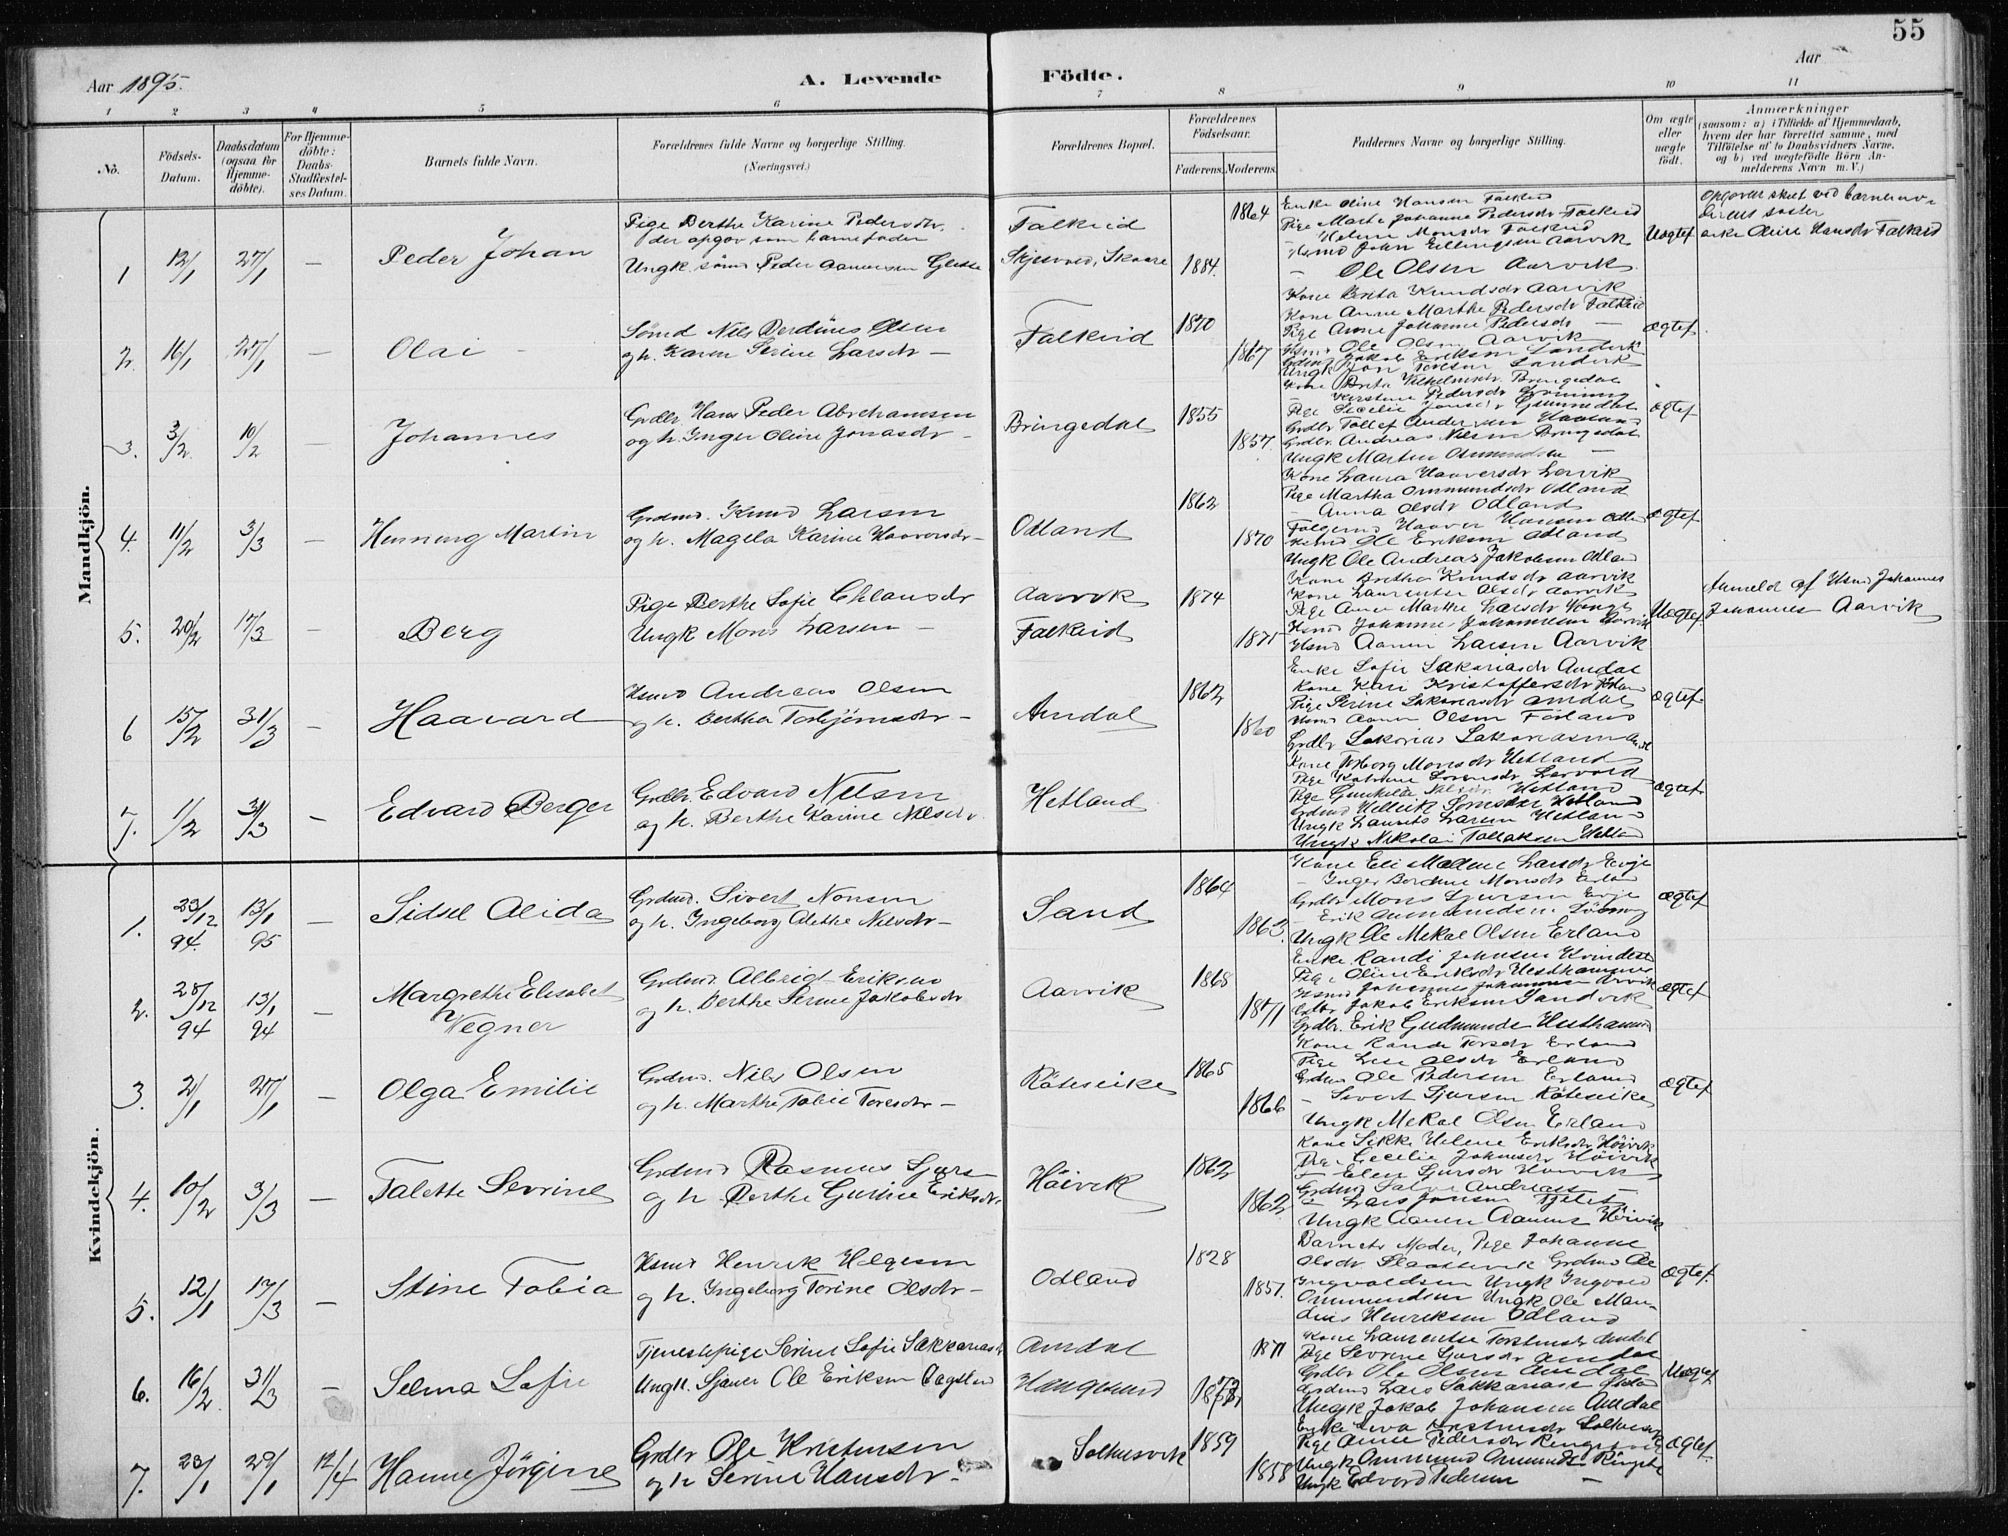 55
Aar 1895.
A. Levende Födte.
Aar
1 2 3 4 5 6 7 8 9 10 11
No.
Födsels-Datum.
Daabsdatum (ogsaa for Hjemme-döbte).
For Hjemme-döbte: Daabs-Stadfæstel-ses Datum.
Barnets fulde Navn.
Forældrenes fulde Navne og borgerlige Stilling. (Næringsvei.)
Forældrenes Bopæl.
Forældrenes Födselsaar.
Faderens. Moderens.
Faddernes Navne og borgerlige Stilling.
Om ægte eller uægte födt.
Anmærkninger
(saasom: a) i Tilfælde af Hjemmedaab, hvem der har forrettet samme, med Tilföielse af to Daabsvidners Navne, og b) ved uægtefödte Börn An-melderens Navn m. V.)
Mandkjön.
1 12/1 27/1 — Peder Johan
Pige Berthe Karine Pedersdr.
der opgav som barnefader
Ungk. sömd Peder
Falkeid
Skjesvold, Skaare
1884. 1864
Enke Oline Hansen Falkeid
Pige Marte Johanne Pedersdr Falkeid
Helene Monsdr Falkeid
Hsmd John Ellingsen Aarvik
— Ole Olsen Aarvik
Uægtef
Opgaven sket ved barnemo-
derens søster
enke Oline Hansdr Falkeid
2. 16/1 27/1 — Olai
Sömd Nils Berdines Olsen
og h. Karen Serine Larsdr —
Falkeid
1870 1867
Kone Brita Knudsdr Aarvik
Kone Anne Marthe Pedersdr Falkeid
Pige Anne Johanne Pedersdr —
Hsmd Ole Olsen Aarvik
Jakob Eriksen Sandvik
Ungk Sandvik
ægtef
3. 3/2 10/2 — Johannes
Grdbr Hans Peder Abrahamsen
og h. Inger Oline Jonasdr —
Bringedal
1855 1857.
Kone Brita Bringedal
Kirstine Pedersdr
Pige Cecilie
Grdbr Tollef Andersen
Grdbr. Andreas Nilsen Bringedal
Ungk Martin Osmundsen —
ægtef
4. 11/2 3/3 — Henning Martin
Grdmd. Knud Larsen
og h. Magela Karine Haaversdr —
Odland
1862 1870
Kone Laura Haaversdr Lervik
Pige Martha Ommundsdr Odland
— Anna Olsdr Odland
Haaver Hansen
Ole Eriksen Odland
Ungk Ole Andreas Jakobsen Odland
ægtef
5. 20/2 17/3 — Berg
Pige Berthe Sofie Clausdr
Ungk Mons Larsen —
Aarvik
Falkeid
1874 1875
Kone Bretha Knudsdr Aarvik
Kone Laurentse Olsdr Aarvik
Pige Anne Marthe Larsdr
Hsmd Johannes Johannesen Aarvik
Hsmd Aanen Larsen Aarvik
Uægtef.
Anmeld af Hsmd Johannes
Johannes Aarvik
6 15/2 31/3 — Haavard
Hsmd Andreas Olsen
og h. Berthe Torbjörnsdr —
Amdal
1862 1860
Enke Sofie Sakariasdr Amdal
Kone Kari Kristoffersdr
Pige Serine Sakariasdr Amdal
Hsmd Aanen Olsen Förland
Grdbr Sakarias Sakariasen
ægtef
7. 1/2 31/3 — Edvard Berger
Grdbr. Edvard Nilsen
og h. Berthe Karine Nilsdr.
Hetland
Kone Torborg Monsdr Hetland
Pige Katrine Sörensdr
Pige Gunhilde Hetland
Grdmd Hetland
Ungk Laurits Larsen Hetland
Ungk Nikolai Tollaksen Hetland
ægtef
Kvindekjön.
1. 23/12 94. 13/1 95 — Sidsel Alida
Grdmd. Sivert Nonsen
og h. Ingeborg Alethe Nilsdr —
Sand
1864 1863.
Kone Eli Malene Larsdr Eevje
— Inger Berdine Monsdr Erland
Grdbr Mons Sjursen Evje
— Erik
Ungk Ole Mekal Olsen Erland
ægtef
2. 28/12 94 13/1 94 — Margrethe Elisabet
Wegner
Grdmd Albrigt Eriksen
og h. Berthe Serine Jakobsdr
Aarvik
1868 1871
Enke Randi Johnsen
Pige Oline Eriksdr Hesthammer
Hsmd Johannes Johannesen Arvik
Grdbr Jakob Eriksen Sandvik
Grdbr. Erik Gudmundsen Hesthammer
ægtef
3. 2/1 27/1 — Olga Emilie
Grdmd. Nils Olsen
og h. Marthe Tobie Toresdr —
Röteseike
1865 1866
Kone Rande Toresdr Erland
Pige Lise Olsdr Erland
Grdmd Ole Pedersen Erland
— Sivert Sjursen Röteseike
Ungk Mekal Olsen Erland
ægtef
4. 10/2 3/3 — Talette Sevrine
Grdmd Rasmus Sjurs —
og h. Berthe Gurine Eriksdr.
Höivik
1862 1862
Kone Sikke Helene Eriksdr Höivik
Pige Cecilie Johansdr Höivik
— Elen Sjursdr Höivik
Grdmd Andreas —
— Lars Jansen
Ungk Aanen Aanens Höivik
5. 12/1 17/3 — Stine Tobia
Hsmd Henrik Helgesen
og h. Ingeborg Torine Olsdr —
Odland
1828 1851.
Barnets Moder, Pige Johanne
Olsdr Slaattevik Grdmd Ole
Ingvaldsen Ungk Ingvald
Ommundsen Ungk Ole Man-
dius Henriksen Odland
ægtef.
6. 16/2 31/3 — Selma Sofie
Tjenestepige Serine Sofie Sakkariasdr
Ungk. Sjauer Ole Eriksen
Amdal
Haugesund
1871
Kone Laurentse Torstensdr Amdal
Pige Sevrine Sjursdr Amdal
Grdbr Ole Olsen Amdal
Grdmd Lars Sakkarias
Ungk Jakob Johansen Amdal
Uægtef
7. 23/1 29/1 12/4 Hanne Jörgine
Grdbr Ole Kristensen
og h Serine Hansdr —
Solhusvik
1859 1858
Pige Anne Pedersdr
Ungk Ommund
Ungk Edvard Pedersen —
ægtef.